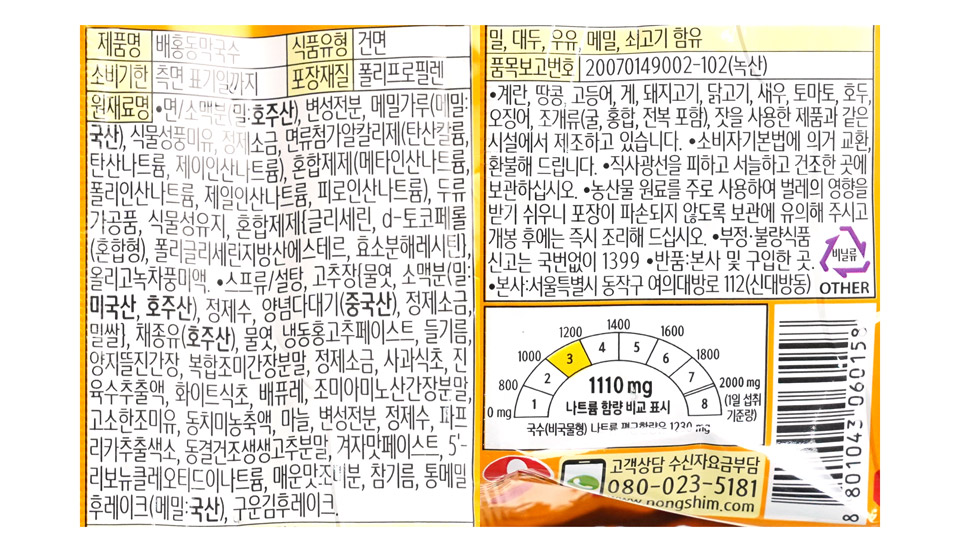 제품명 배홍동막국수 식품유형 건면
소비기한 측면 표기일까지 포장재질 폴리프로필렌
원재료명 •면/소맥분(밀:호주산), 변성전분, 메밀가루(메밀:
국산), 식물성풍미유, 정제소금, 면류첨가알칼리제(탄산칼륨,
탄산나트륨, 제이인산나트륨), 혼합제제(메타인산나트륨,
폴리인산나트륨, 제일인산나트륨, 피로인산나트륨), 두류
가공품, 식물성유지, 혼합제제{글리세린, d-토코페롤
(혼합형), 폴리글리세린지방산에스테르, 효소분해레시틴},
올리고녹차풍미액. •스프류/설탕, 고추장{물엿, 소맥분(밀:
미국산, 호주산), 정제수, 양념다대기(중국산), 정제소금,
밀쌀}, 채종유(호주산), 물엿, 냉동홍고추페이스트, 들기름,
양지뜨진간장, 복합조미간장분말, 정제소금, 사과식초, 진
육수추출액, 화이트식초, 배퓨레, 조미아미노산간장분말,
고소한조미유, 동치미농축액, 마늘, 변성전분, 정제수, 파프
리카추출색소, 동결건조생생고추분말, 겨자맛페이스트, 5'-
리보뉴클레오티드이나트륨, 매운맛조미분, 참기름, 통메밀
후레이크(메밀:국산), 구운김후레이크.
밀, 대두, 우유, 메밀, 쇠고기 함유
품목보고번호 20070149002-102(녹산)
•계란, 땅콩, 고등어, 게, 돼지고기, 닭고기, 새우, 토마토, 호두,
오징어, 조개류(굴, 홍합, 전복 포함), 잣을 사용한 제품과 같은
시설에서 제조하고 있습니다. •소비자기본법에 의거 교환,
환불해 드립니다. •직사광선을 피하고 서늘하고 건조한 곳에
보관하십시오. •농산물 원료를 주로 사용하여 벌레의 영향을
받기 쉬우니 포장이 파손되지 않도록 보관에 유의해 주시고
개봉 후에는 즉시 조리해 드십시오. •부정·불량식품
신고는 국번없이 1399 •반품:본사 및 구입한 곳.
•본사:서울특별시 동작구 여의대방로 112(신대방동)
비닐류
OTHER
0 mg 800 1000 1200 1400 1600 1800 2000 mg
(1일 섭취
기준량)
1 2 3 4 5 6 7 8
1110 mg
나트륨 함량 비교 표시
국수(비국물형) 나트륨 평균함량은 1230 mg
고객상담 수신자요금부담
080-023-5181
www.nongshim.com
8 801043 060159